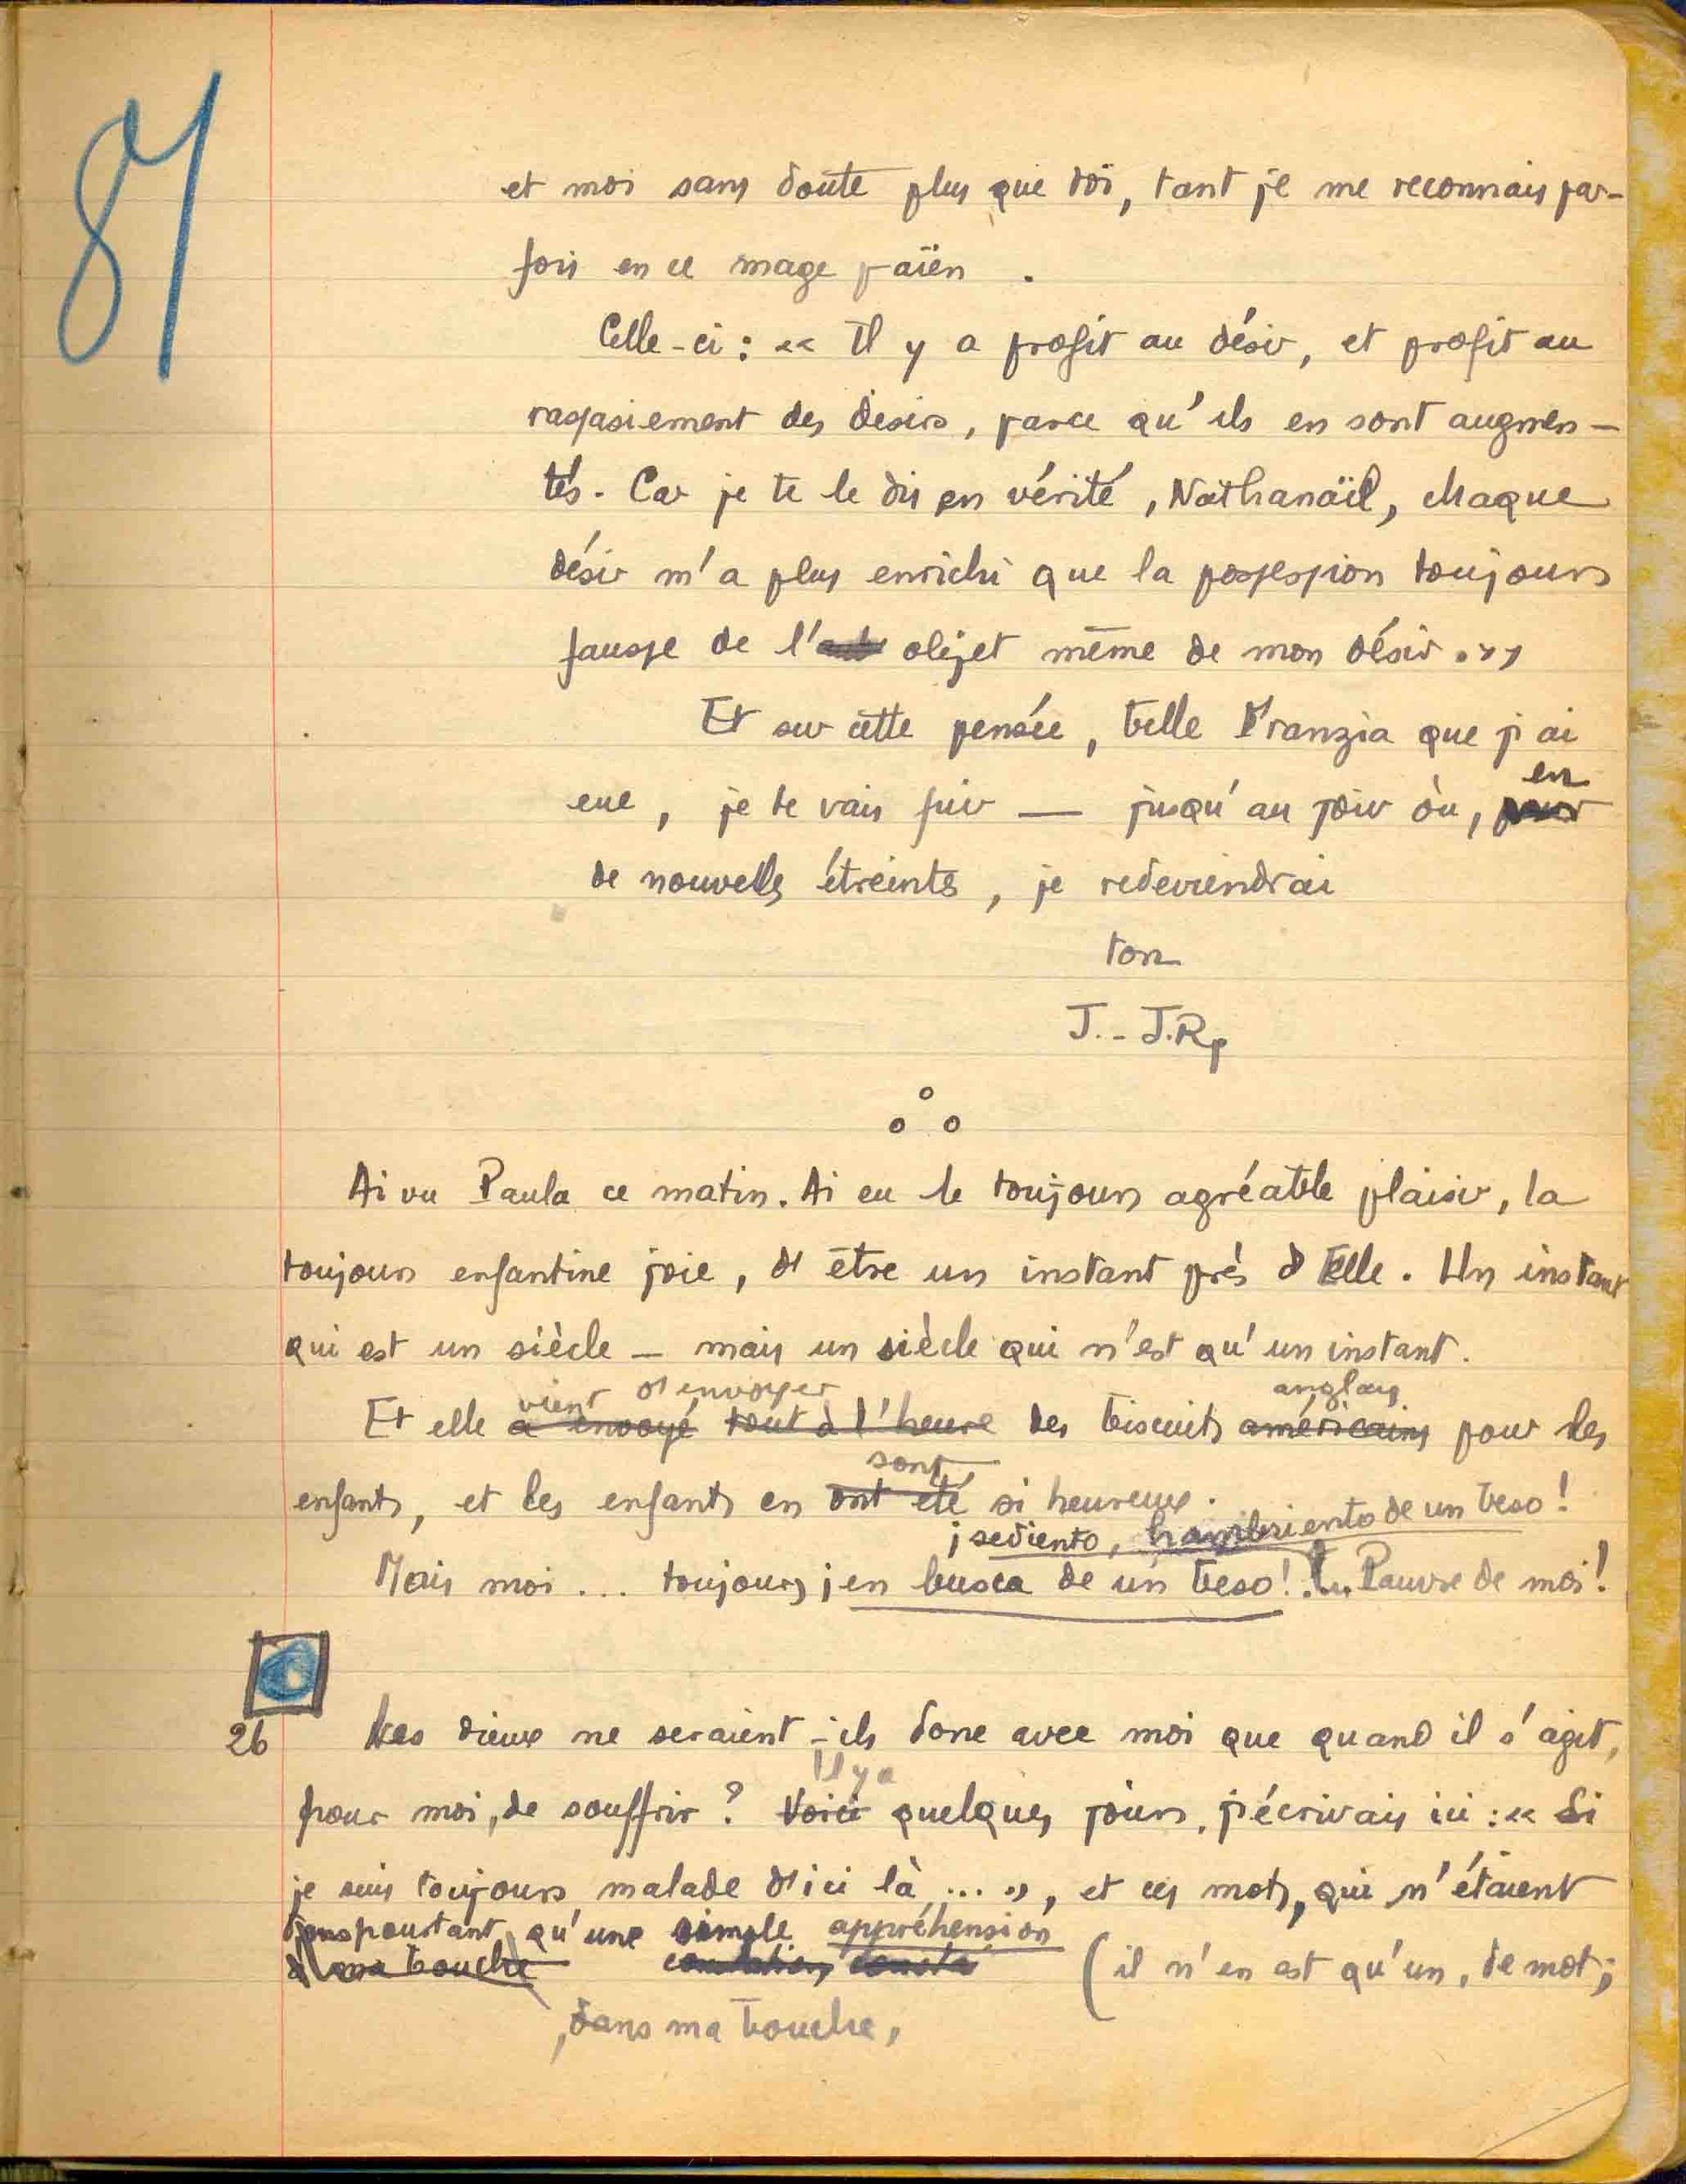 87
et moi sans doute plus que toi, tant je me reconnais par-
fois en ce mage païen .
Celle-ci : « Il y a profit au désir, et profit au
rassasiement des désirs, parce qu'ils en sont augmen-
tés. Car je te le dis en vérité, Nathanaël, chaque
désir m'a plus enrichi que la possession toujours
fausse de l' objet même de mon désir. »
Et sur cette pensée, belle Franzia que j'ai
eue, je te vais fuir — jusqu'au jour où, pour en
de nouvelles étreintes, je redeviendrai
ton
J.-J.Rp
Ai vu Paula ce matin. Ai eu le toujours agréable plaisir, la
toujours enfantine joie, d'être un instant près d'Elle. Un instant
qui est un siècle — mais un siècle qui n'est qu'un instant.
vient d'envoyer anglais
Et elle a envoyé tout à l'heure des biscuits américains pour les
sont
enfants, et les enfants en ont été si heureux.
¡sediento, hambriento de un beso!
Mais moi ... toujours ¡en busca de un beso! ... Pauvre de moi!
26
Les dieux ne seraient-ils donc avec moi que quand il s'agit,
Il y a
pour moi, de souffrir ? Voici quelques jours, j'écrivais ici : « Si
je suis toujours malade d'ici là ... », et ces mots, qui n'étaient
pourtant qu'une simple appréhension
ma bouche (il n'en est qu'un, de mot;
, dans ma bouche,